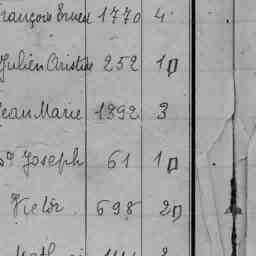 François Ernest 1770 4
Julien Aristide 252 1
Jean Marie 1892 3
Joseph 61 1
Victor 698 2